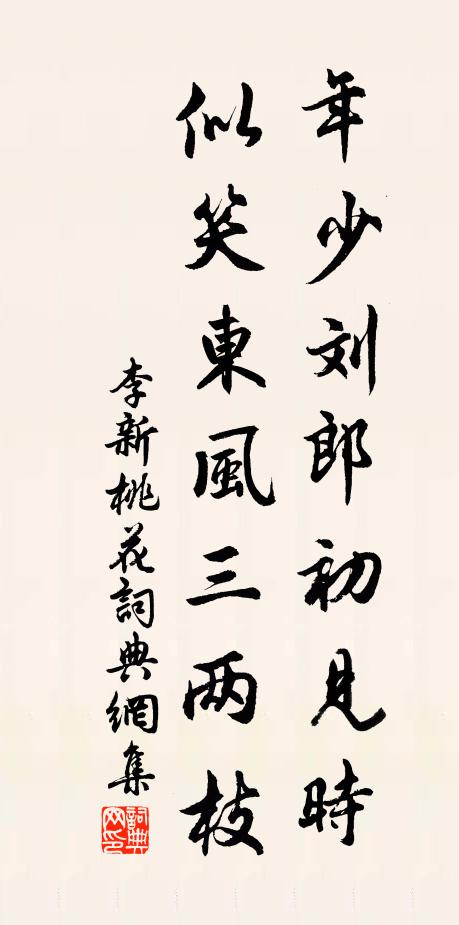 年少刘郎初見時
似笑東風三两枝
李新桃花詞典網集
詞典網印